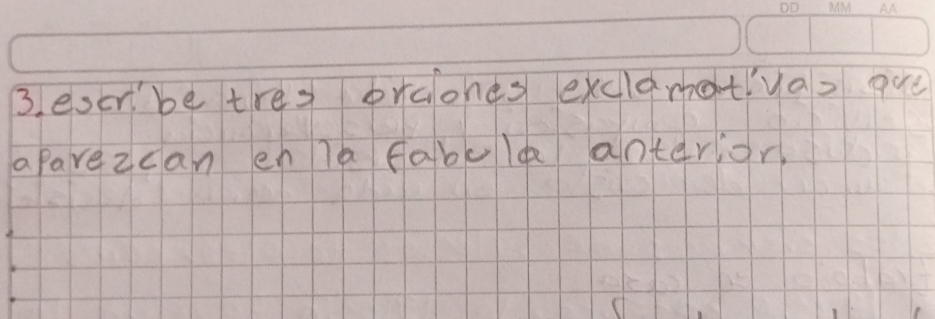 DD MM AA
3. escribe tres orciones exclamativas que
aparezcan en la fabula anterior.